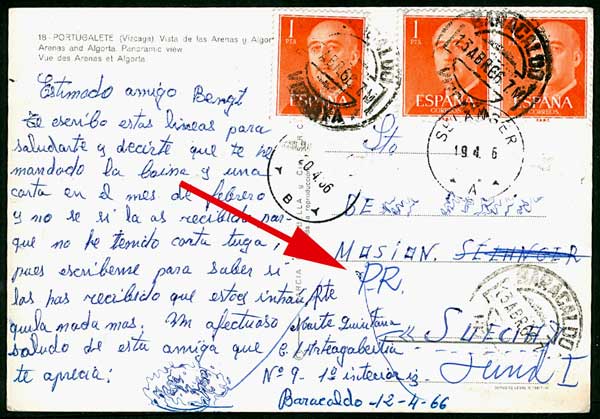 18 - PORTUGALETE (Vizcaya). Vista de las Arenas y Algor
Arenas and Algorta. Panoramic view
Vue des Arenas et Algorta
Estimado amigo Bengt
Te escribo estas lineas para
saludarte y decirte que te he
mandado la boina y una
carta en el mes de febrero
y no se si la as recibido por
que no he tenido carta tuya,
pues escribeme para saber si
las has recibido que estoy intran
quila nada mas. Un afectuoso
saludo de esta amiga que
te aprecia:
Rte
Maite Quintana
C. Arteagabeitia
Nº 9 - 1º interior iz
Baracaldo - 12-4-66
1
PTA
ESPAÑA
CORREOS
1
PTA
ESPAÑA
CORREOS
ESPAÑA
CORREOS
BARACALDO
13 ABR 66
VIZCAYA
19 4 6
A
20 4 66
B
Sto
DE
MOSION. SEZANGER
P.R.
« SUECIA »
BARACALDO
13 ABR 66